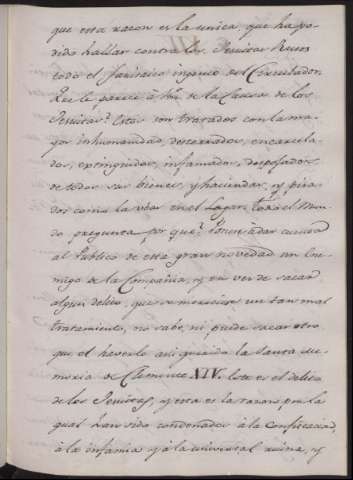 que esta razon es la unica, que ha po-
dido hallar contra los Jesuitas Reos
todo el farisaico ingenio del Circulador.
Que le parece à Vm. de la Causa de los
Jesuitas? Estos son tratados con la ma-
yor inhumanidad, desterrados, encarcela-
dos, extinguidos, infamados, despojados
de todos sus bienes, y haciendas, y pisa-
dos como la uba en el Lagar: todo el Mun-
do pregunta por que? Ponese à dar cuenta
al Publico de esta gran novedad un Ene-
migo de la Compañia, y en vez de sacar
algun delito, que mereciese un tan mal
tratamiento, no sabe, ni puede sacar otro
que el haverlo asi querido la Santa me-
moria de Clemente XIV. Este es el delito
de los Jesuitas, y esta es la razon por la
qual han sido condenados à la confiscacion,
à la infamia, y à la universal ruina, y